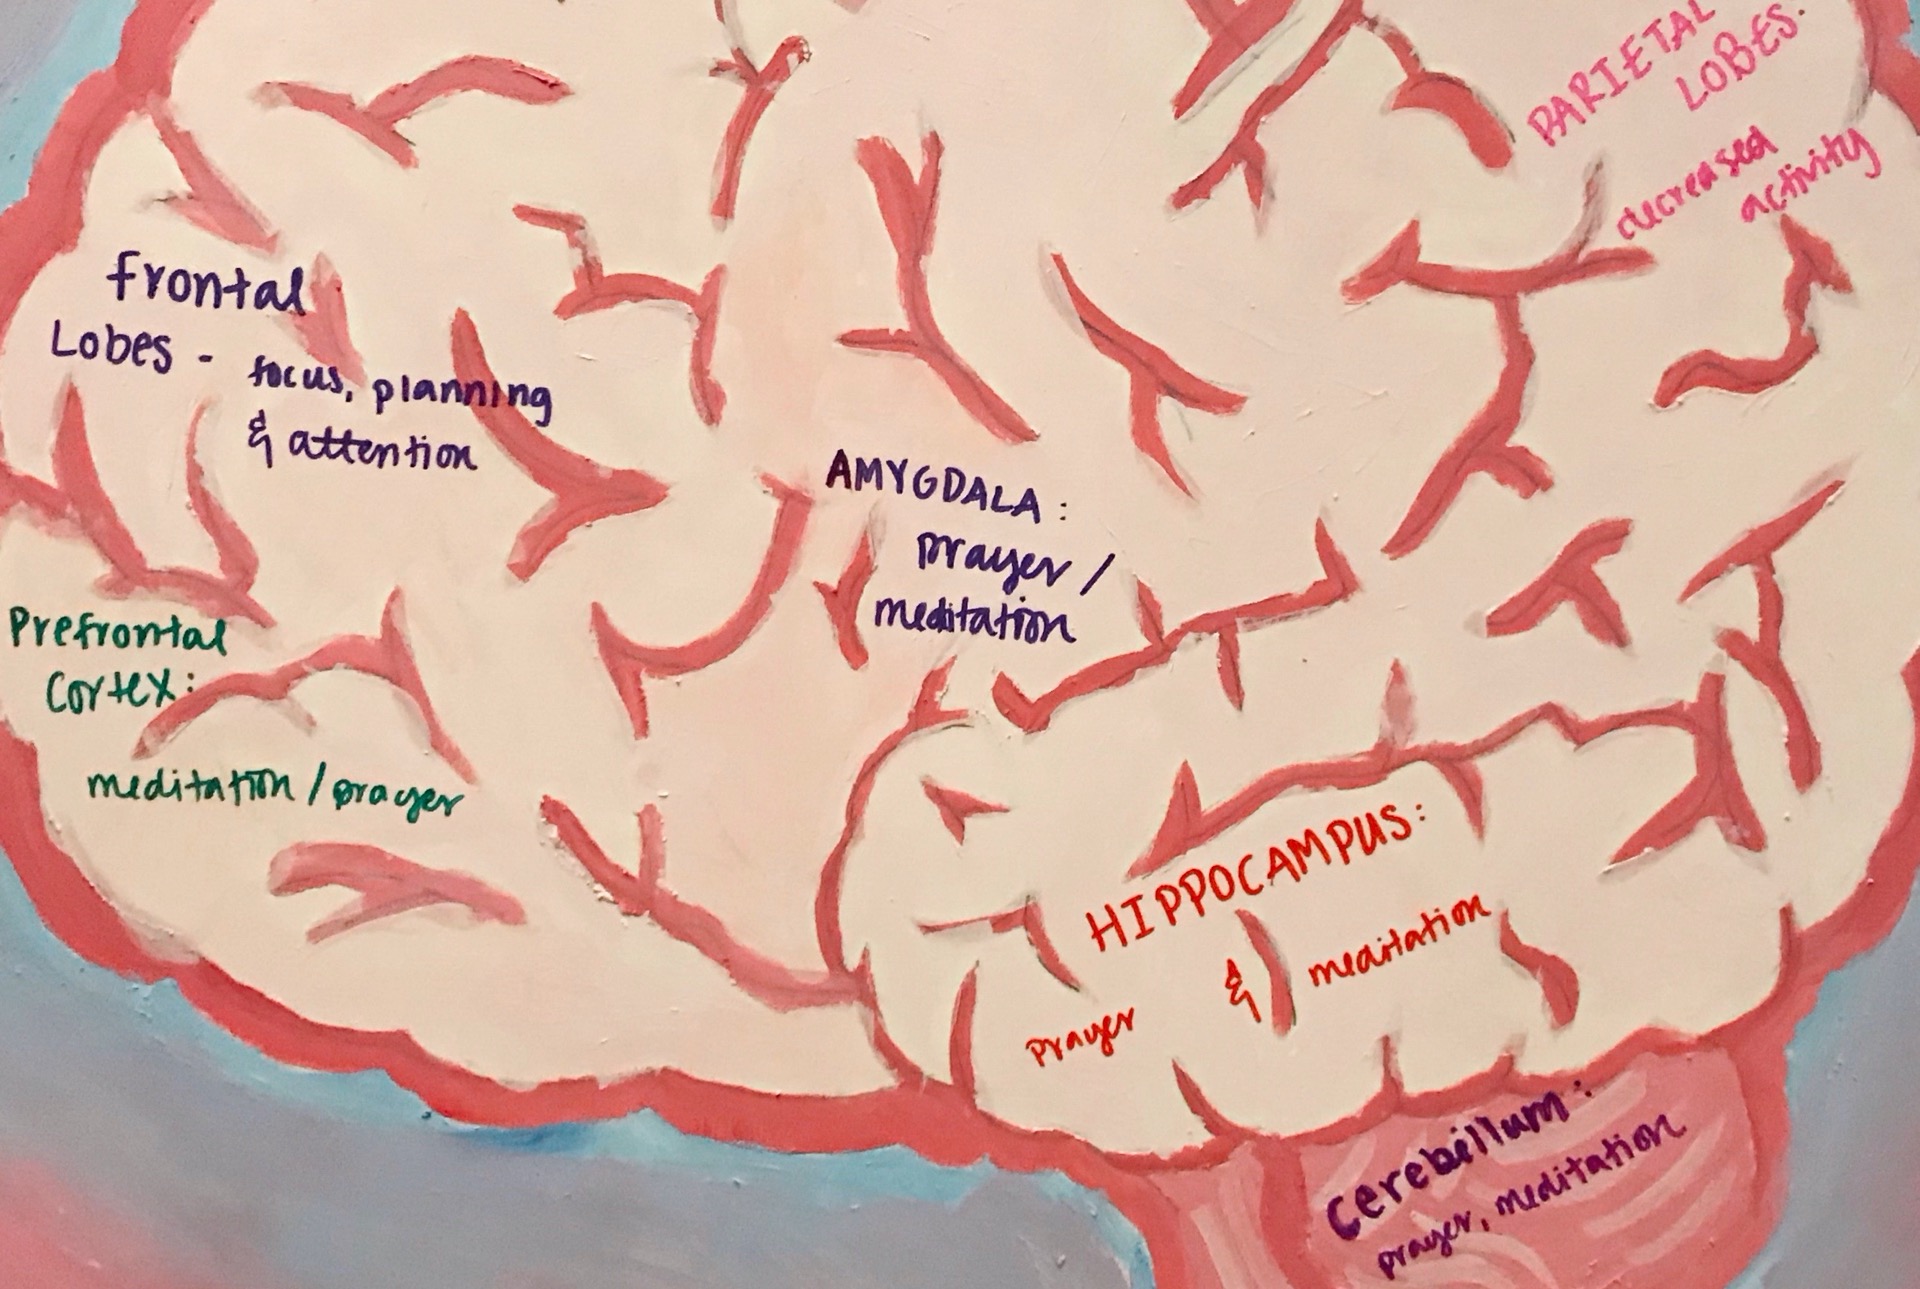 PARIETAL
LOBES:
decreased
activity
frontal
Lobes - focus, planning
& attention
AMYGDALA:
prayer/
meditation
Prefrontal
Cortex:
meditation/prayer
HIPPOCAMPUS:
prayer & meditation
Cerebellum:
prayer, meditation